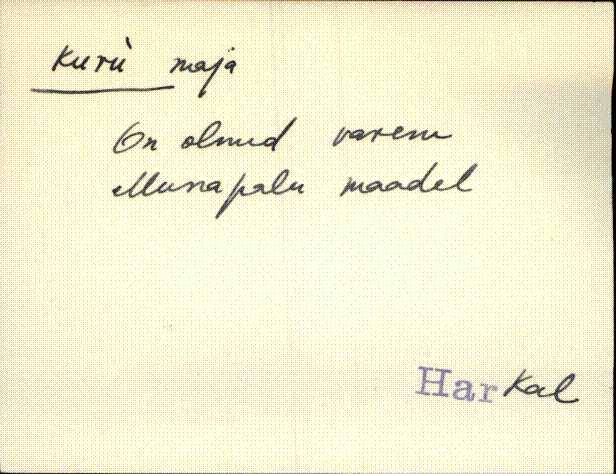 Kurìi maja
On olnud varem
Munapalu maadel
Har Kal